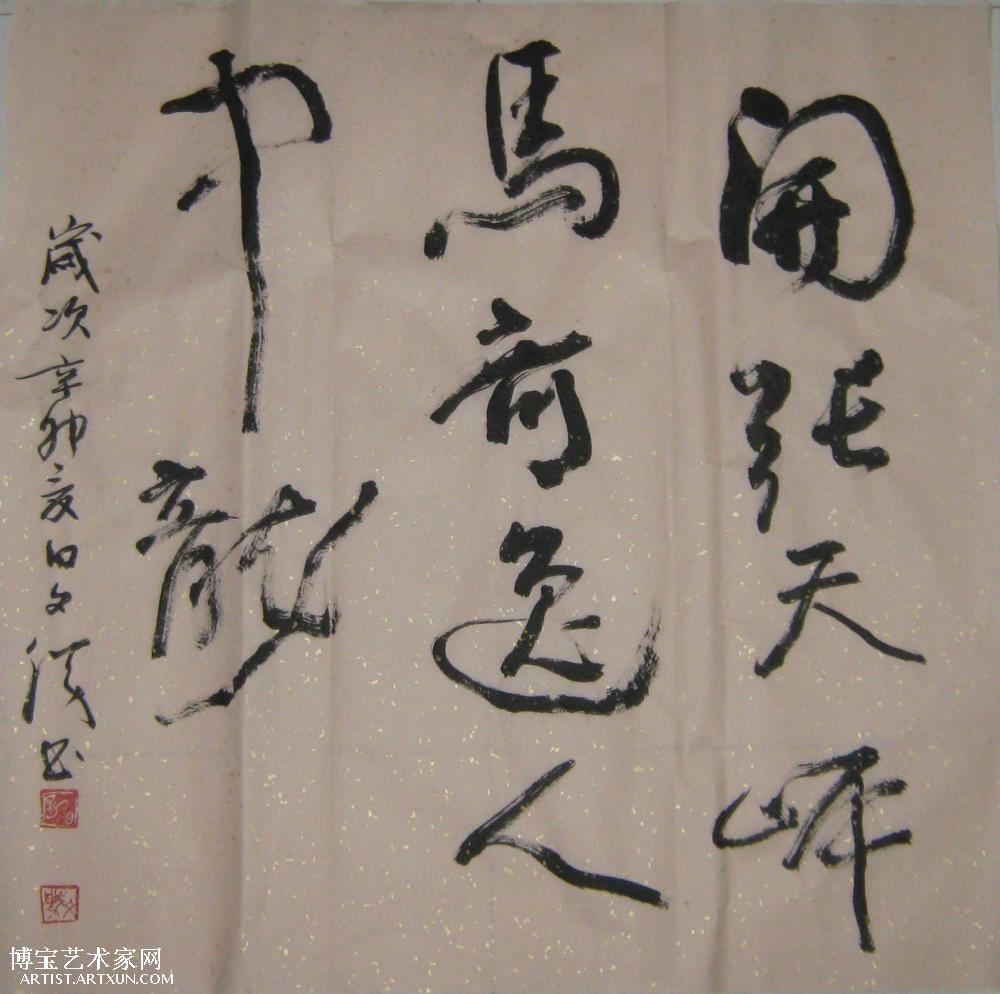 開張天岸
馬奇逸人
中龍
歲次辛卯夏日文書
博宝艺术家网
ARTIST.ARTXUN.COM